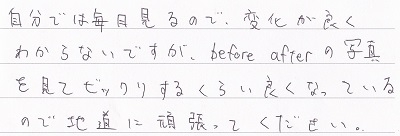 自分では毎日見るので、変化が良く
わからないですが、before afterの写真
を見てビックリするくらい良くなっている
ので地道に頑張ってください。